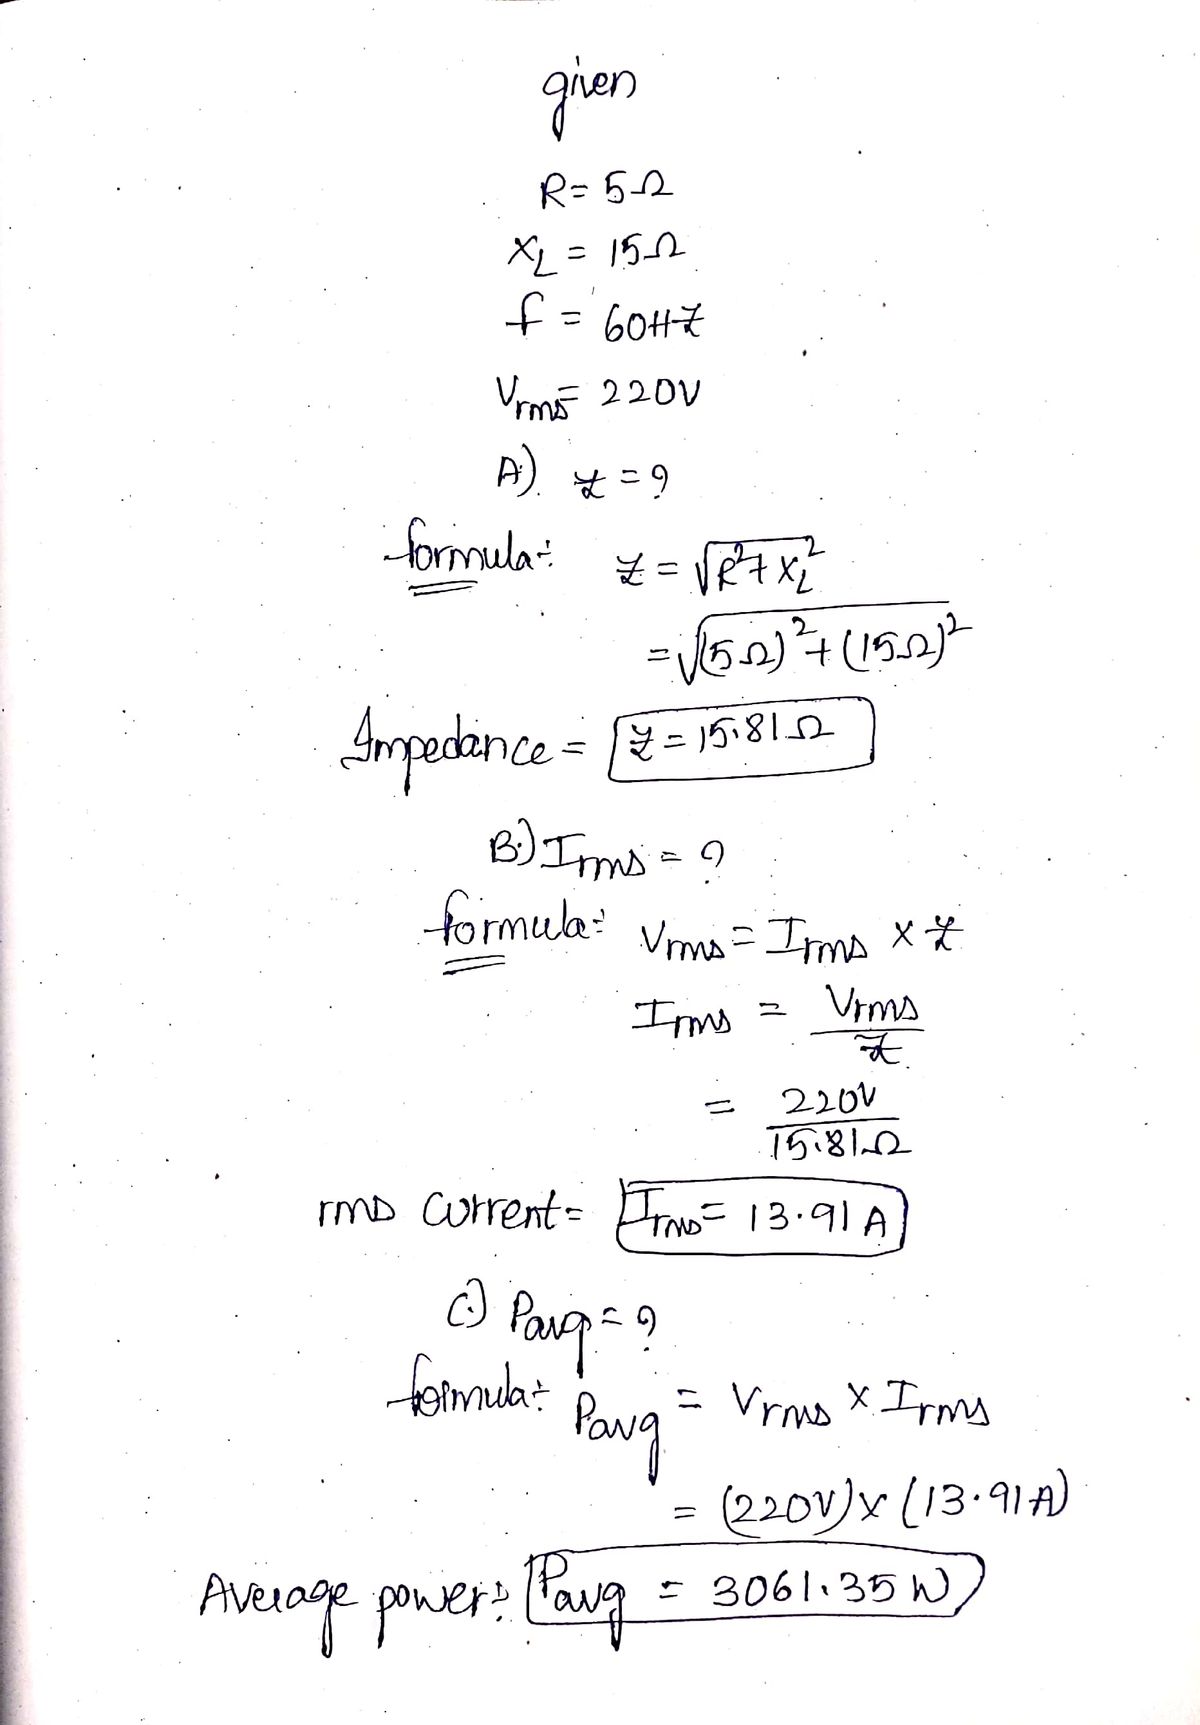 given
R = 5Ω
X_L = 15Ω
f = 60HZ
Vrms = 220V
A) Z = ?
formula÷ Z = √R²+X_L²
= √(5Ω)²+(15Ω)²
Impedance = Z = 15.81Ω
B.) Irms = ?
formula÷ Vrms = Irms × Z
Irms = Vrms
Z
= 220V
15.81Ω
rms current = Irms = 13.91 A
C.) Pavg = ?
formula÷ Pavg = Vrms × Irms
= (220V) × (13.91A)
Average power÷ Pavg = 3061.35 W